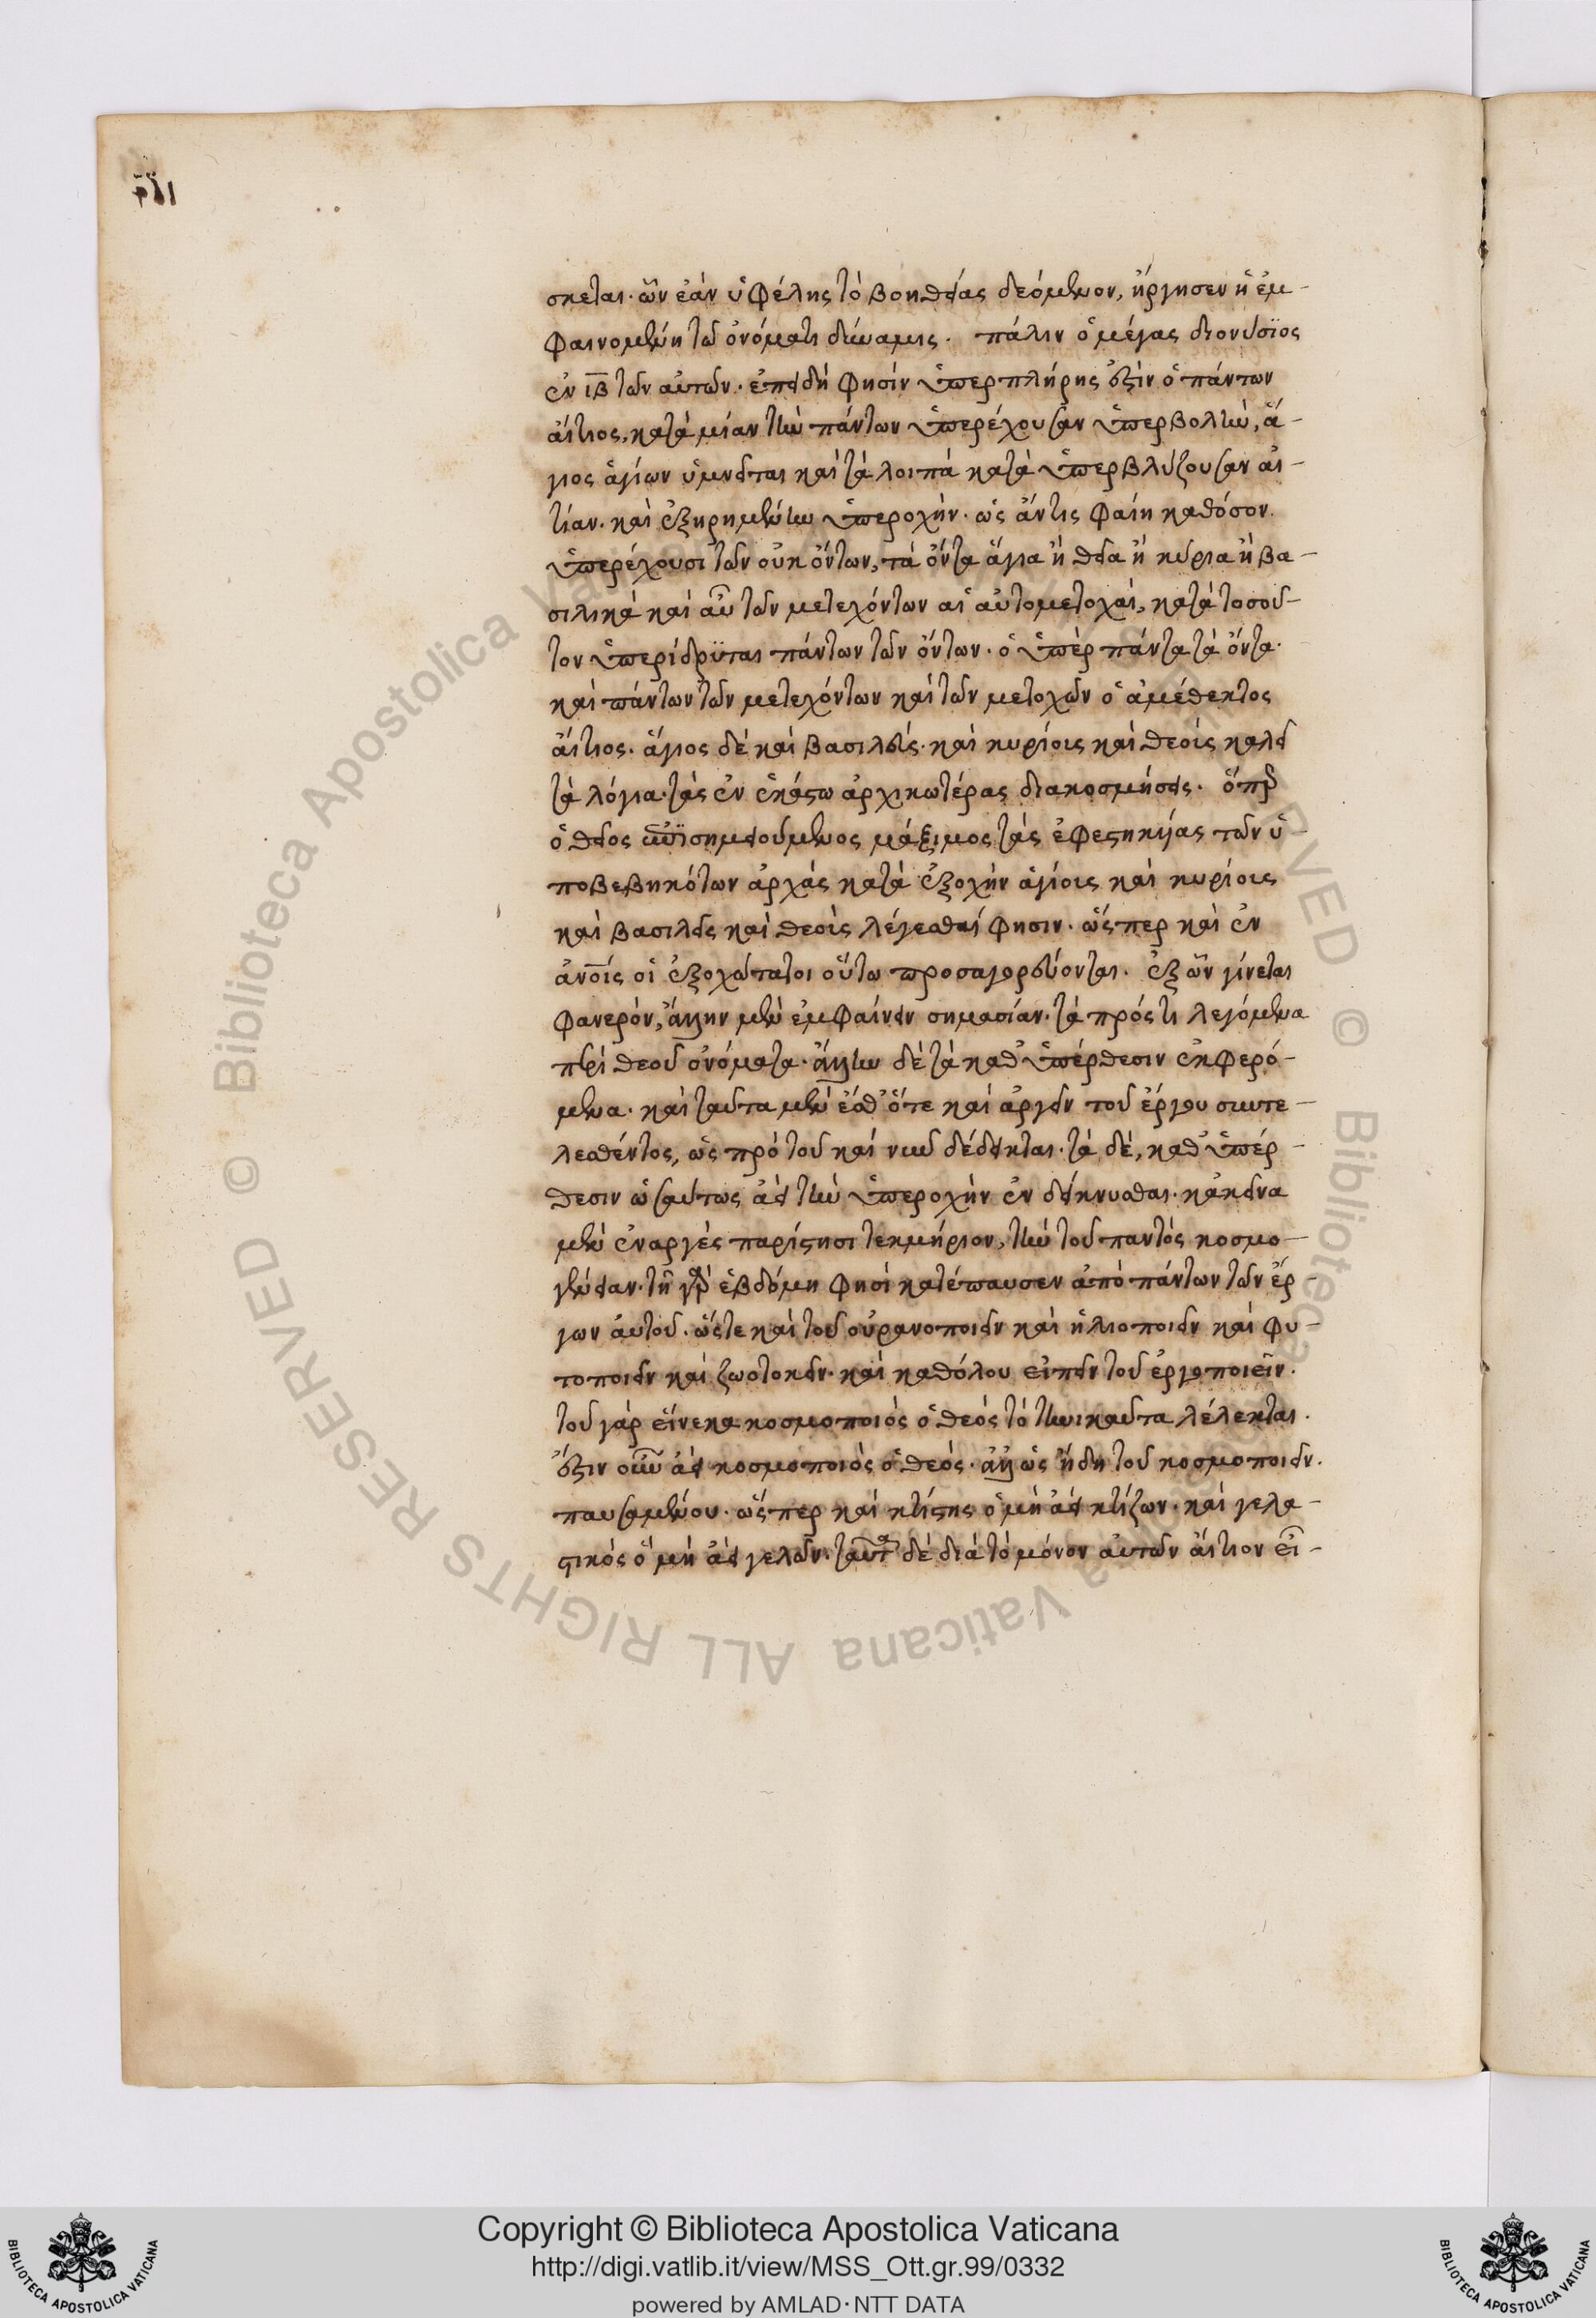 σκεται. ὧν ἐὰν ὑφέλης τὸ βοηθείας δεόμενον, ἤργησεν ἡ ἐμ-
φαινομένη τῶ ὀνόματι δύναμις. πάλιν ὁ μέγας διονύσϊος
ἐν ιβ τῶν αὐτῶν. ἐπειδή φησιν ὑπερπλήρης ἐστὶν ὁ πάντων
αἴτιος, κατὰ μίαν τὴν πάντων ὑπερέχουσαν ὑπερβολὴν, ἅ-
γιος ἁγίων ὑμνεῖται καὶ τὰ λοιπὰ κατὰ ὑπερβλύζουσαν αἰ-
τίαν. καὶ ἐξηρημένην ὑπεροχὴν. ὡς ἄν τις φαίη καθόσον.
ὑπερέχουσι τῶν οὐκ ὄντων, τὰ ὄντα ἅγια ἢ θεῖα ἢ κύρια ἢ βα-
σιλικὰ καὶ αὖ τῶν μετεχόντων αἱ αὐτομετοχαί, κατὰ τοσοῦ-
τον ὑπερίδρϋται πάντων τῶν ὄντων. ὁ ὑπὲρ πάντα τὰ ὄντα.
καὶ πάντων τῶν μετεχόντων καὶ τῶν μετοχῶν ὁ ἀμέθεκτος
αἴτιος. ἁγίους δὲ καὶ βασιλεῖς. καὶ κυρίους καὶ θεοὺς καλεῖ
τὰ λόγια. τὰς ἐν ἑκάστω ἀρχικωτέρας διακοσμήσεις. ὅπερ
ὁ θεῖος ἐπϊσημειούμενος μάξιμος τὰς ἐφεστηκυίας τῶν ὑ-
ποβεβηκότων ἀρχὰς κατὰ ἐξοχὴν ἁγίους καὶ κυρίους
καὶ βασιλεῖς καὶ θεοὺς λέγεσθαί φησιν. ὥσπερ καὶ ἐν
ἀνοις οἱ ἐξοχώτατοι οὕτω προσαγορεύονται. ἐξ ὧν γίνεται
φανερὸν, ἄλλην μὲν ἐμφαίνειν σημασίαν. τὰ πρός τι λεγόμενα
περὶ θεοῦ ὀνόματα. ἄλλην δὲ τὰ καθ' ὑπέρθεσιν ἐκφερό-
μενα. καὶ ταῦτα μὲν ἔσθ' ὅτε καὶ ἀργεῖν τοῦ ἔργου συντε-
λεσθέντος, ὡς πρὸ τοῦ καὶ νῦν δέδεικται. τὰ δὲ, καθ' ὑπέρ-
θεσιν ὡσαύτως ἀεὶ τὴν ὑπεροχὴν ἐνδείκνυσθαι. κἀκεῖνα
μὲν ἐναργὲς παρίστησι τεκμήριον, τὴν τοῦ παντὸς κοσμο-
γένειαν. τῆ γὰρ ἑβδόμη φησὶ κατέπαυσεν ἀπὸ πάντων τῶν ἔρ-
γων αὐτοῦ. ὥστε καὶ τοῦ οὐρανοποιεῖν καὶ ἡλιοποιεῖν καὶ φυ-
τοποιεῖν καὶ ζωοτοκεῖν. καὶ καθόλου εἰπεῖν τοῦ ἐργοποιεῖν.
τοῦ γὰρ εἵνεκα κοσμοποιὸς ὁ θεὸς τὸ τηνικαῦτα λέλεκται.
ἔστιν οὖν ἀεὶ κοσμοποιὸς ὁ θεὸς. ἀλλ' ὡς ἤδη τοῦ κοσμοποιεῖν.
παυσαμένου. ὥσπερ καὶ κτίστης ὁ μὴ ἀεὶ κτίζων. καὶ γελα-
στικὸς ὁ μὴ ἀεὶ γελῶν. ταῦτα δὲ διὰ τὸ μόνον αὐτῶν αἴτιον εἶ-
Copyright © Biblioteca Apostolica Vaticana
http://digi.vatlib.it/view/MSS_Ott.gr.99/0332
powered by AMLAD·NTT DATA
BIBLIOTECA APOSTOLICA VATICANA
BIBLIOTECA APOSTOLICA VATICANA
© Biblioteca Apostolica Vaticana ALL RIGHTS RESERVED